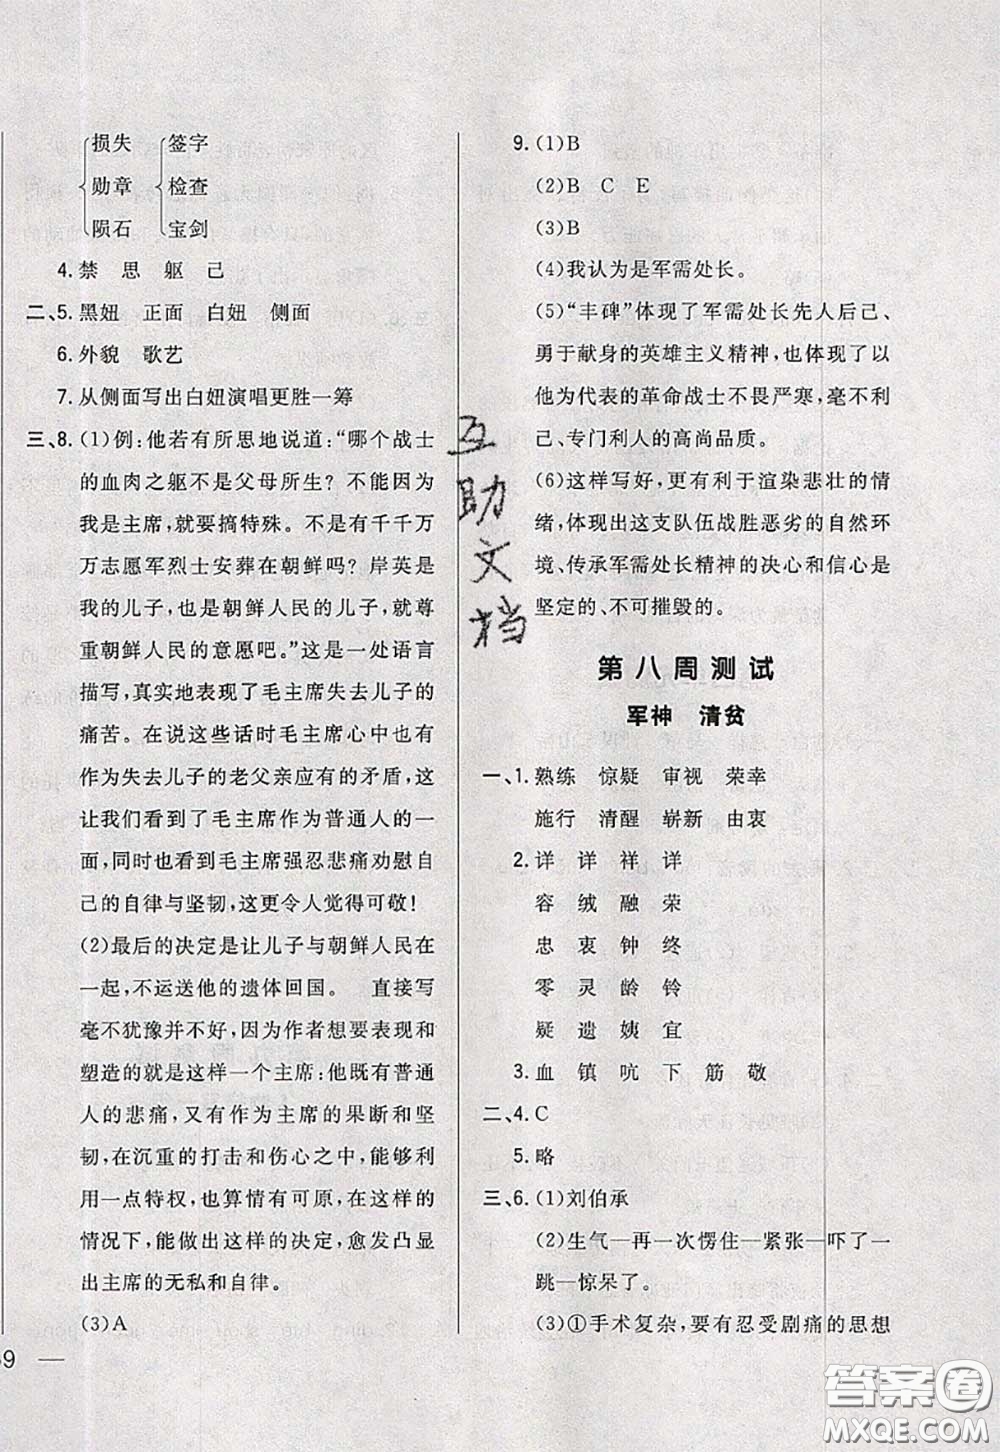 损失 签字
勋章 检查
陨石 宝剑
4.禁 思 躯 己
二、5.黑妞 正面 白妞 侧面
6.外貌 歌艺
7.从侧面写出白妞演唱更胜一筹
三、8.(1)例:他若有所思地说道:“哪个战士
的血肉之躯不是父母所生?不能因为
我是主席,就要搞特殊。不是有千千万
万志愿军烈士安葬在朝鲜吗?岸英是
我的儿子,也是朝鲜人民的儿子,就尊
重朝鲜人民的意愿吧。”这是一处语言
描写,真实地表现了毛主席失去儿子的
痛苦。在说这些话时毛主席心中也有
作为失去儿子的老父亲应有的矛盾,这
让我们看到了毛主席作为普通人的一
面,同时也看到毛主席强忍悲痛劝慰自
己的自律与坚韧,这更令人觉得可敬!
(2)最后的决定是让儿子与朝鲜人民在
一起,不运送他的遗体回国。 直接写
毫不犹豫并不好,因为作者想要表现和
塑造的就是这样一个主席:他既有普通
人的悲痛,又有作为主席的果断和坚
韧,在沉重的打击和伤心之中,能够利
用一点特权,也算情有可原,在这样的
情况下,能做出这样的决定,愈发凸显
出主席的无私和自律。
(3)A
59 —
9.(1)B
(2)B C E
(3)B
(4)我认为是军需处长。
(5)“丰碑”体现了军需处长先人后己、
勇于献身的英雄主义精神,也体现了以
他为代表的革命战士不畏严寒,毫不利
己、专门利人的高尚品质。
(6)这样写好,更有利于渲染悲壮的情
绪,体现出这支队伍战胜恶劣的自然环
境、传承军需处长精神的决心和信心是
坚定的、不可摧毁的。
第八周测试
军神 清贫
一、1.熟练 惊疑 审视 荣幸
施行 清醒 崭新 由衷
2.详 详 祥 详
容 绒 融 荣
忠 衷 钟 终
零 灵 龄 铃
疑 遗 姨 宜
3.血 镇 吭 下 筋 敬
二、4.C
5.略
三、6.(1)刘伯承
(2)生气—再一次愣住—紧张—吓了一
跳—惊呆了。
(3)①手术复杂,要有忍受剧痛的思想
互助文档
答案圈
MXQE.COM